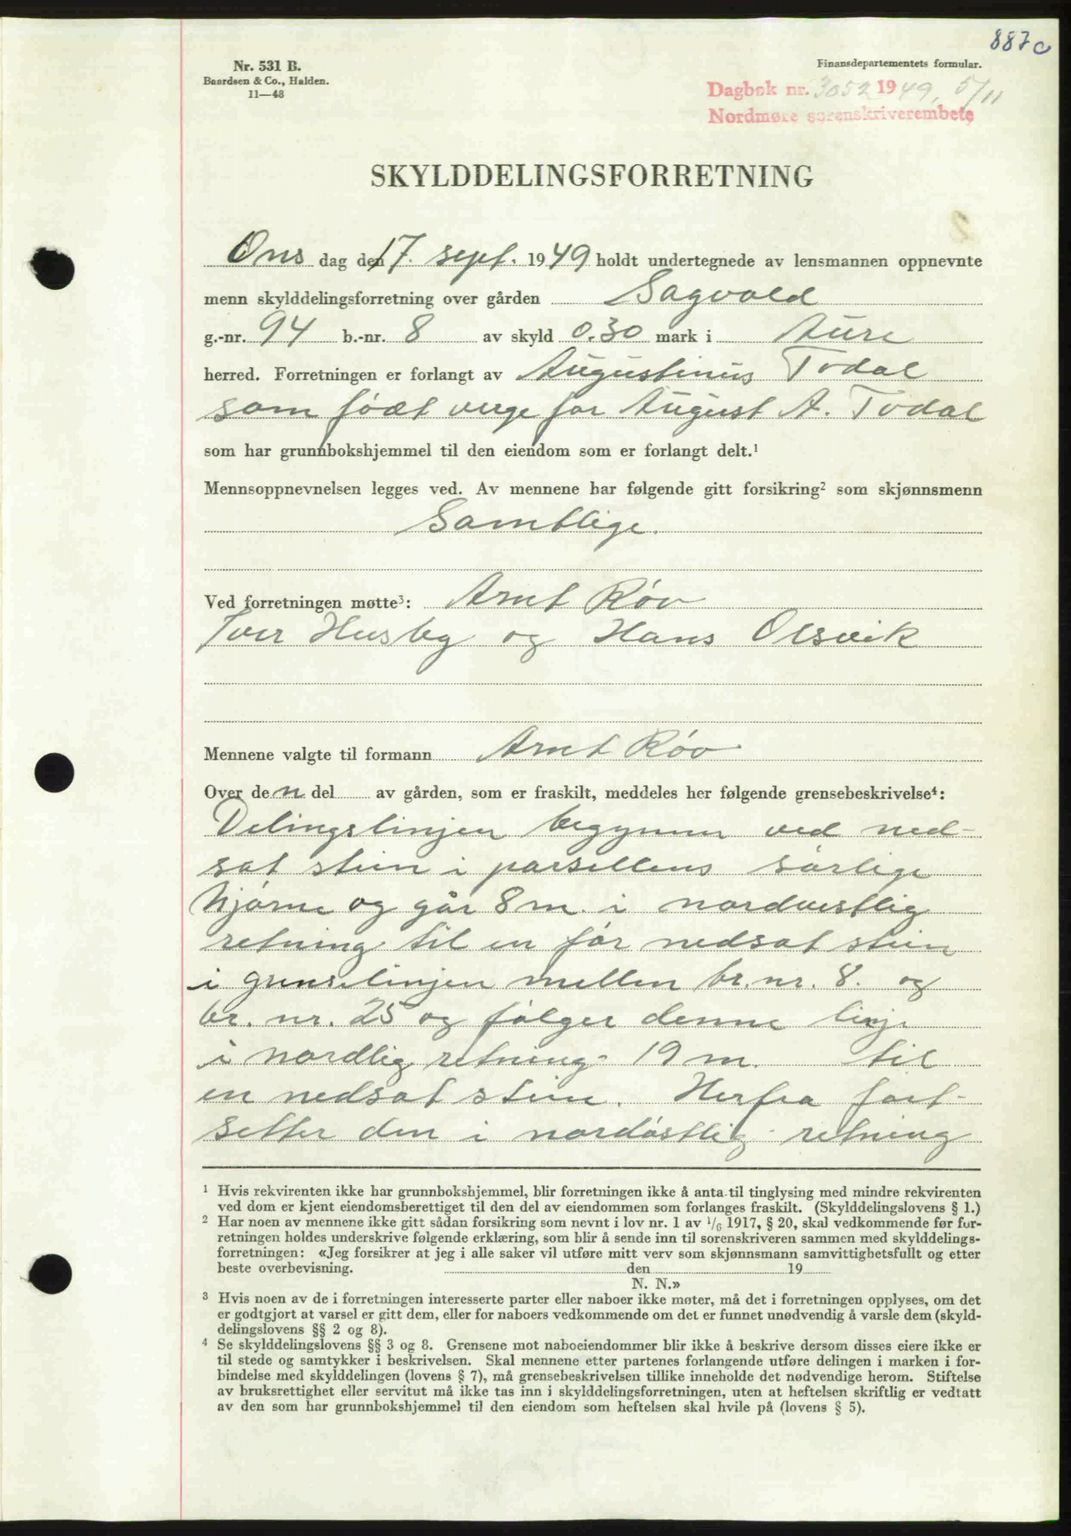 887c
Nr. 531 B.
Baardsen & Co., Halden.
11—48
Finansdepartementets formular.
Dagbok nr. 3052 1949, 5/11
Nordmøre sorenskriverembete
SKYLDDELINGSFORRETNING
Ons dag den 17. sept. 1949 holdt undertegnede av lensmannen oppnevnte
menn skylddelingsforretning over gården Sagvold
g.-nr. 94 b.-nr. 8 av skyld 0.30 mark i Aure
herred. Forretningen er forlangt av Augustinus Todal
som født verge for August A. Todal
som har grunnbokshjemmel til den eiendom som er forlangt delt.¹
Mennsoppnevnelsen legges ved. Av mennene har følgende gitt forsikring² som skjønnsmenn
Samtlige.
Ved forretningen møtte³: Arnt Røv
Iver Husby og Hans Olsvik
Mennene valgte til formann Arnt Røv
Over den del av gården, som er fraskilt, meddeles her følgende grensebeskrivelse⁴:
Delingslinjen begynner ved ned-
sat stein i parsellens sørlige
hjørne og går 8 m. i nordvestlig
retning til en før nedsat stein
i grenselinjen mellem br. nr. 8. og
br. nr. 25 og følger denne linje
i nordlig retning 19 m. til
en nedsat stein. Herfra fort-
setter den i nordøstlig retning
¹ Hvis rekvirenten ikke har grunnbokshjemmel, blir forretningen ikke å anta til tinglysing med mindre rekvirenten
ved dom er kjent eiendomsberettiget til den del av eiendommen som forlanges fraskilt. (Skylddelingslovens § 1.)
² Har noen av mennene ikke gitt sådan forsikring som nevnt i lov nr. 1 av 1/6 1917, § 20, skal vedkommende før for-
retningen holdes underskrive følgende erklæring, som blir å sende inn til sorenskriveren sammen med skylddelings-
forretningen: «Jeg forsikrer at jeg i alle saker vil utføre mitt verv som skjønnsmann samvittighetsfullt og etter
beste overbevisning. den 19
N. N.»
³ Hvis noen av de i forretningen interesserte parter eller naboer ikke møter, må det i forretningen opplyses, om det
er godtgjort at varsel er gitt dem, eller for naboers vedkommende om det er funnet unødvendig å varsle dem (skyld-
delingslovens §§ 2 og 8).
⁴ Se skylddelingslovens §§ 3 og 8. Grensene mot naboeiendommer blir ikke å beskrive dersom disses eiere ikke er
til stede og samtykker i beskrivelsen. Skal mennene etter partenes forlangende utføre delingen i marken i for-
bindelse med skylddelingen (lovens § 7), må grensebeskrivelsen tillike inneholde det nødvendige herom. Stiftelse
av bruksrettighet eller servitut må ikke tas inn i skylddelingsforretningen, uten at heftelsen skriftlig er vedtatt
av den som har grunnbokshjemmel til den eiendom som heftelsen skal hvile på (lovens § 5).